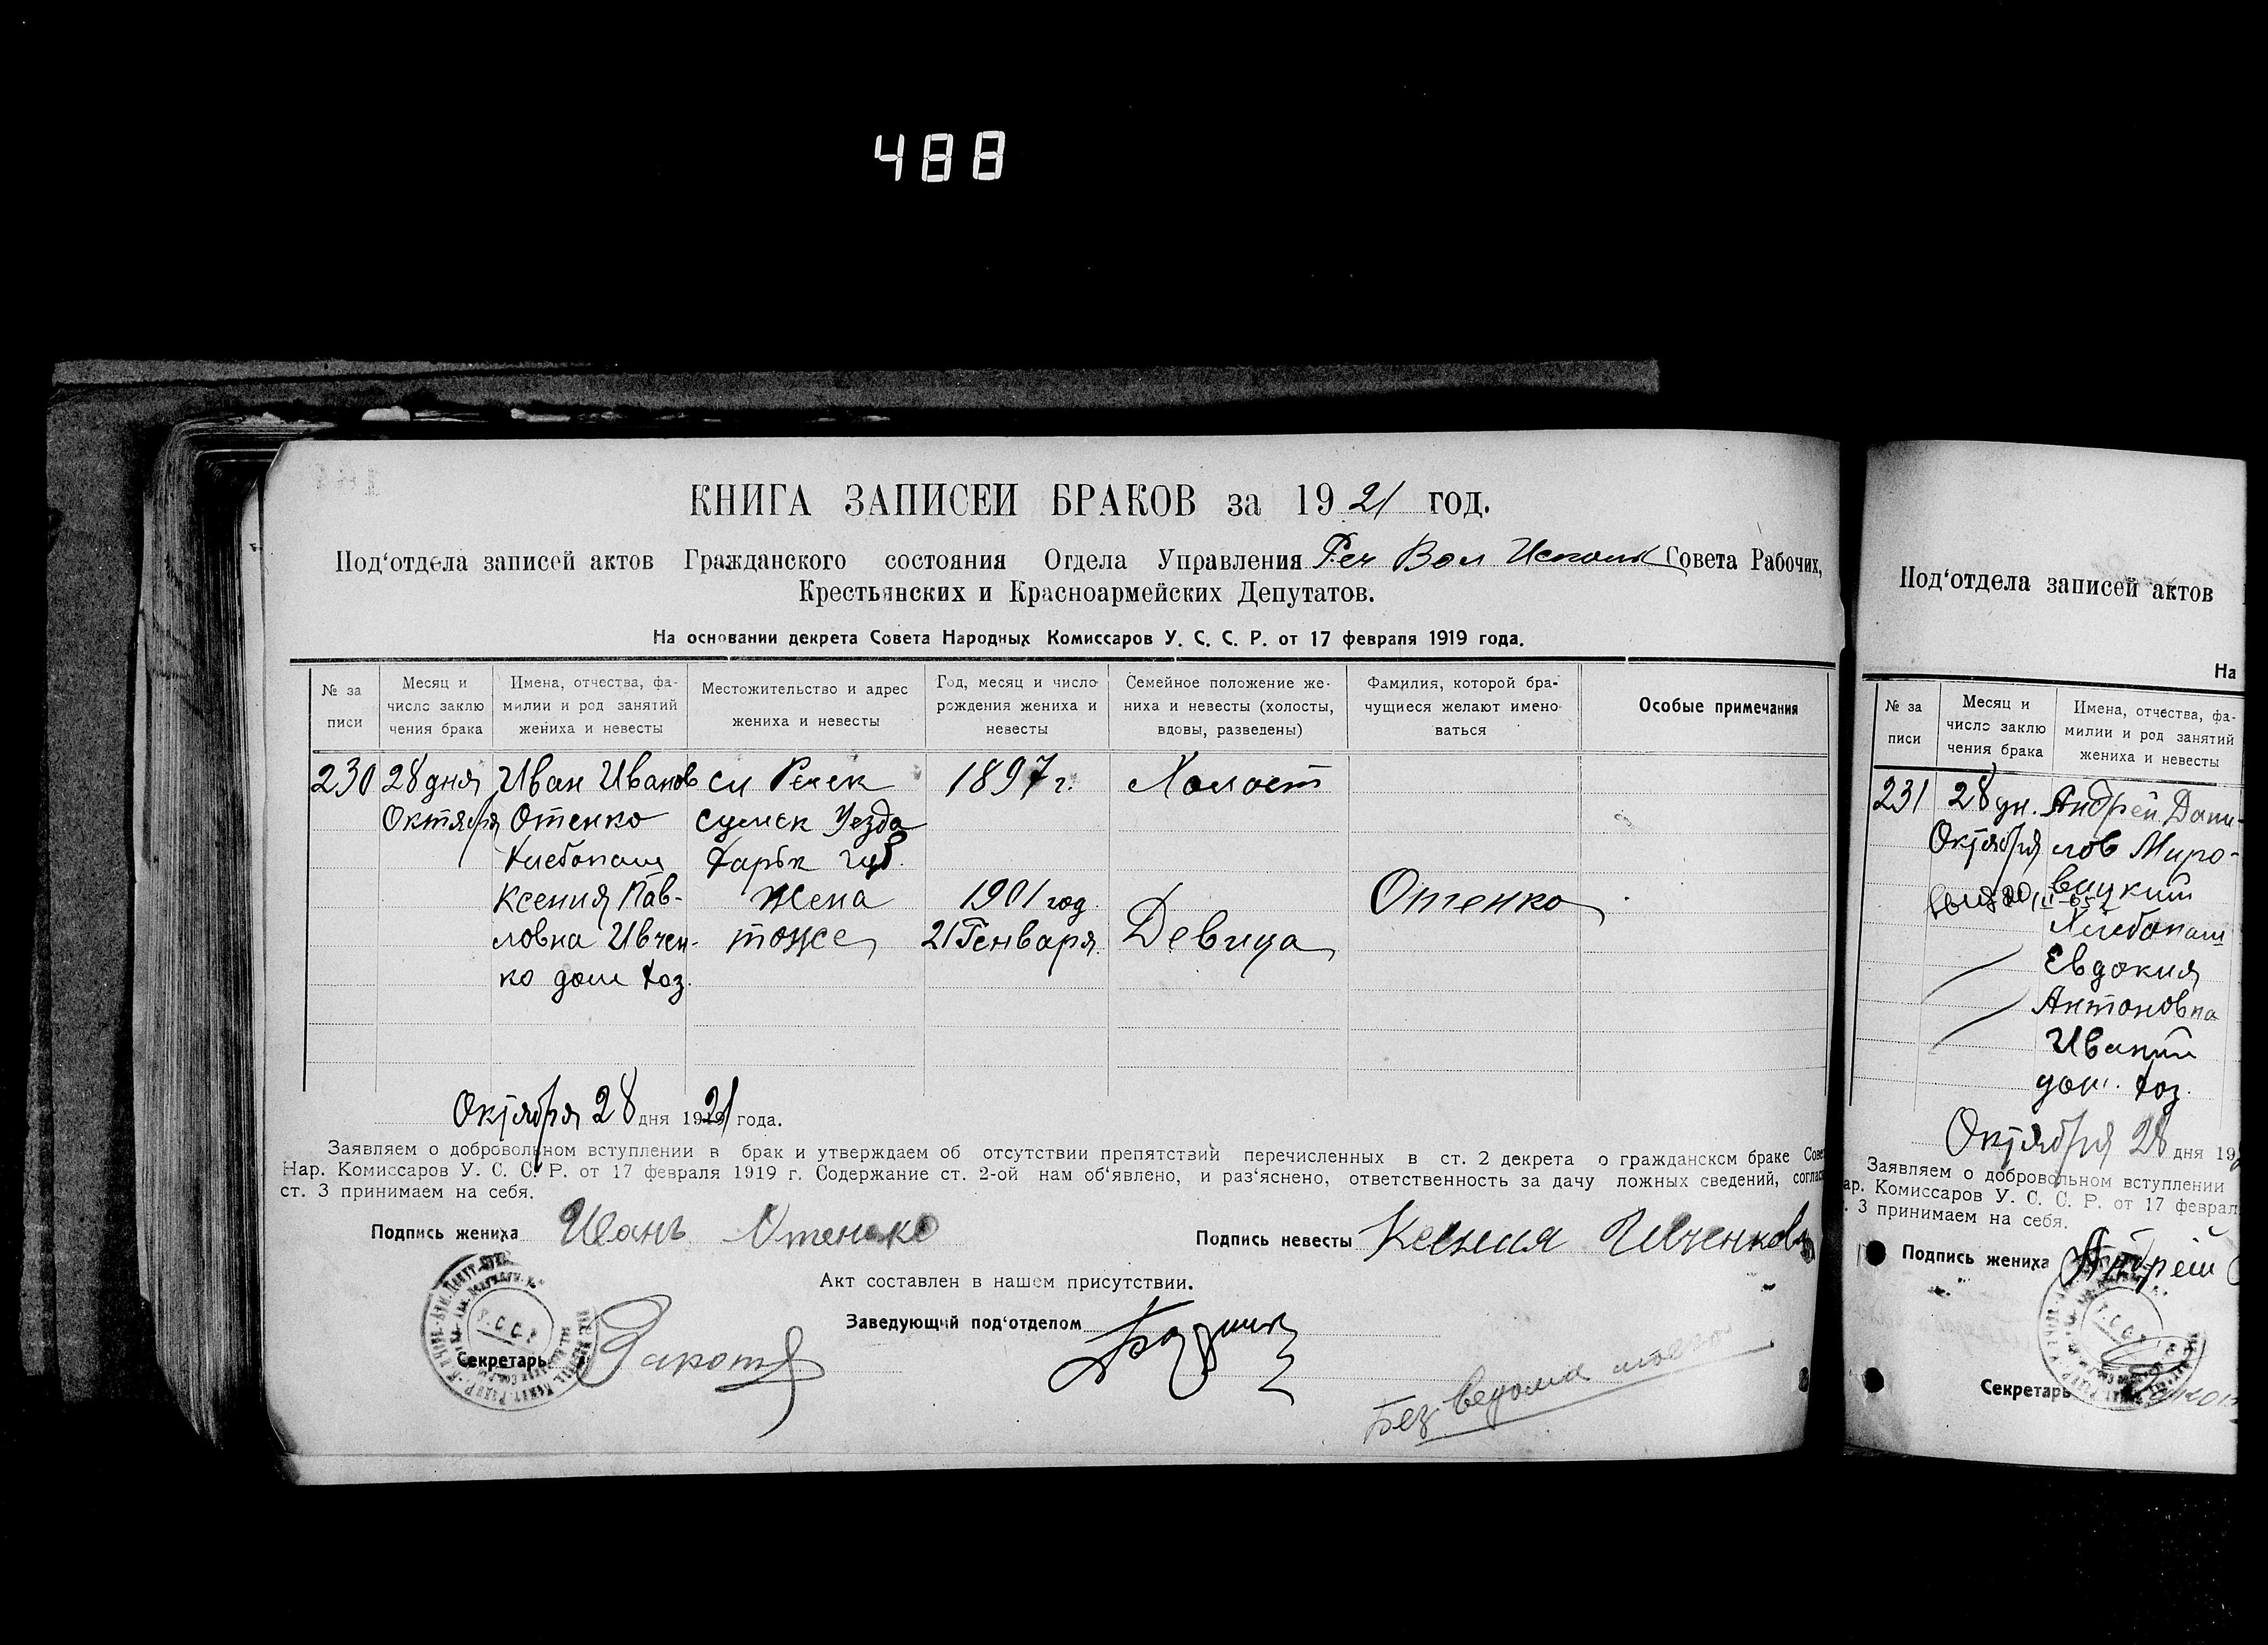 488
КНИГА ЗАПИСЕИ БРАКОВ за 1921 год.
Под‘отдела записей актов Гражданского состояния Отдела Управления Реч Вол Исполк Совета Рабочих,
Крестьянских и Красноармейских Депутатов.
На основании декрета Совета Народных Комиссаров У. С. С. Р. от 17 февраля 1919 года.
№ за писи
Месяц и число заклю чения брака
Имена, отчества, фа- милии и род занятий жениха и невесты
Местожительство и адрес жениха и невесты
Год, месяц и число рождения жениха и невесты
Семейное положение же- ниха и невесты (холосты, вдовы, разведены)
Фамилия, которой бра- чущиеся желают имено- ваться
Особые примечания
230 28 дня Иван Иванов сл Речек 1897 г. Холост
Октября Отенко сумск Уезда
Хлебопаш Харьк губ.
Ксения Пав- Жена 1901 год Отенко
ловна Ивчен- тоже 21 Генваря Девица
ко дом хоз.
Октября 28 дня 1921 года.
Заявляем о добровольном вступлении в брак и утверждаем об отсутствии препятствий перечисленных в ст. 2 декрета о гражданском браке Сове
Нар. Комиссаров У. С. С. Р. от 17 февраля 1919 г. Содержание ст. 2-ой нам об‘явлено, и раз‘яснено, ответственность за дачу ложных сведений, соглас
ст. 3 принимаем на себя.
Подпись жениха Иванъ Отенко
Подпись невесты Ксения Ивченкова
Акт составлен в нашем присутствии.
Заведующий под‘отделом
Секретарь
Без ведома
Под‘отдела записей актов
На
№ за писи
Месяц и число заклю чения брака
Имена, отчества, фа- милии и род занятий жениха и невесты
231 28 дн. Андрей Дани-
Октября лов Миро-
вицкий
Хлебопаш
Евдокия
Антоновна
дом. хоз.
Октября 28 дня 19
Заявляем о добровольном вступлении
ар. Комиссаров У. С. С. Р. от 17 феврал
. 3 принимаем на себя.
Подпись жениха Андрей
Секретарь